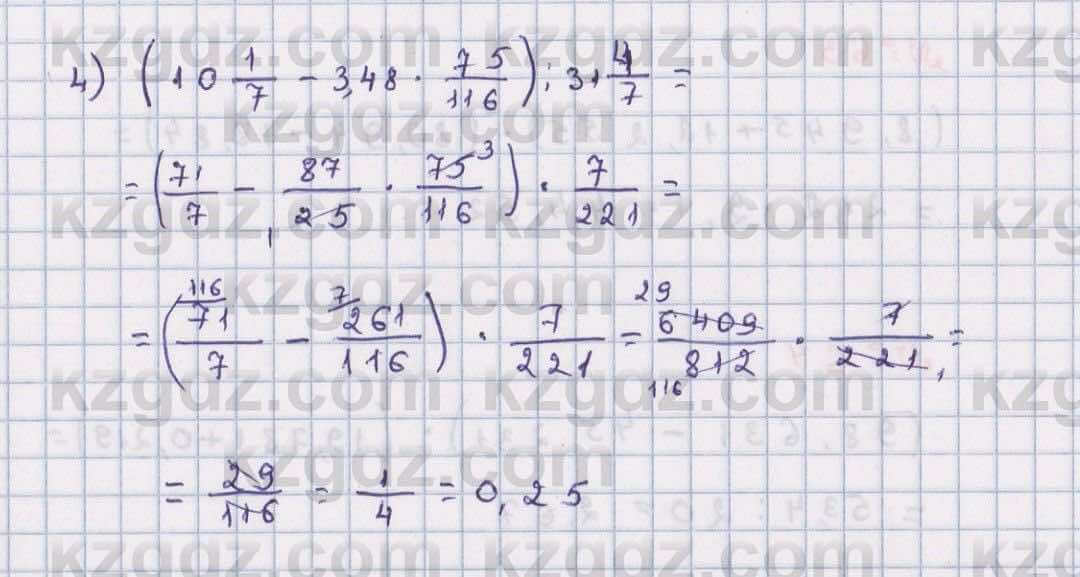 4) (10 1/7 - 3,48 · 75/116) : 31 4/7 =
= (71/7 - 87/25 · 75/116) · 7/221 =
= (71/7 - 261/116) · 7/221 = 6409/812 · 7/221 =
= 29/116 = 1/4 = 0,25
kzgdz.com